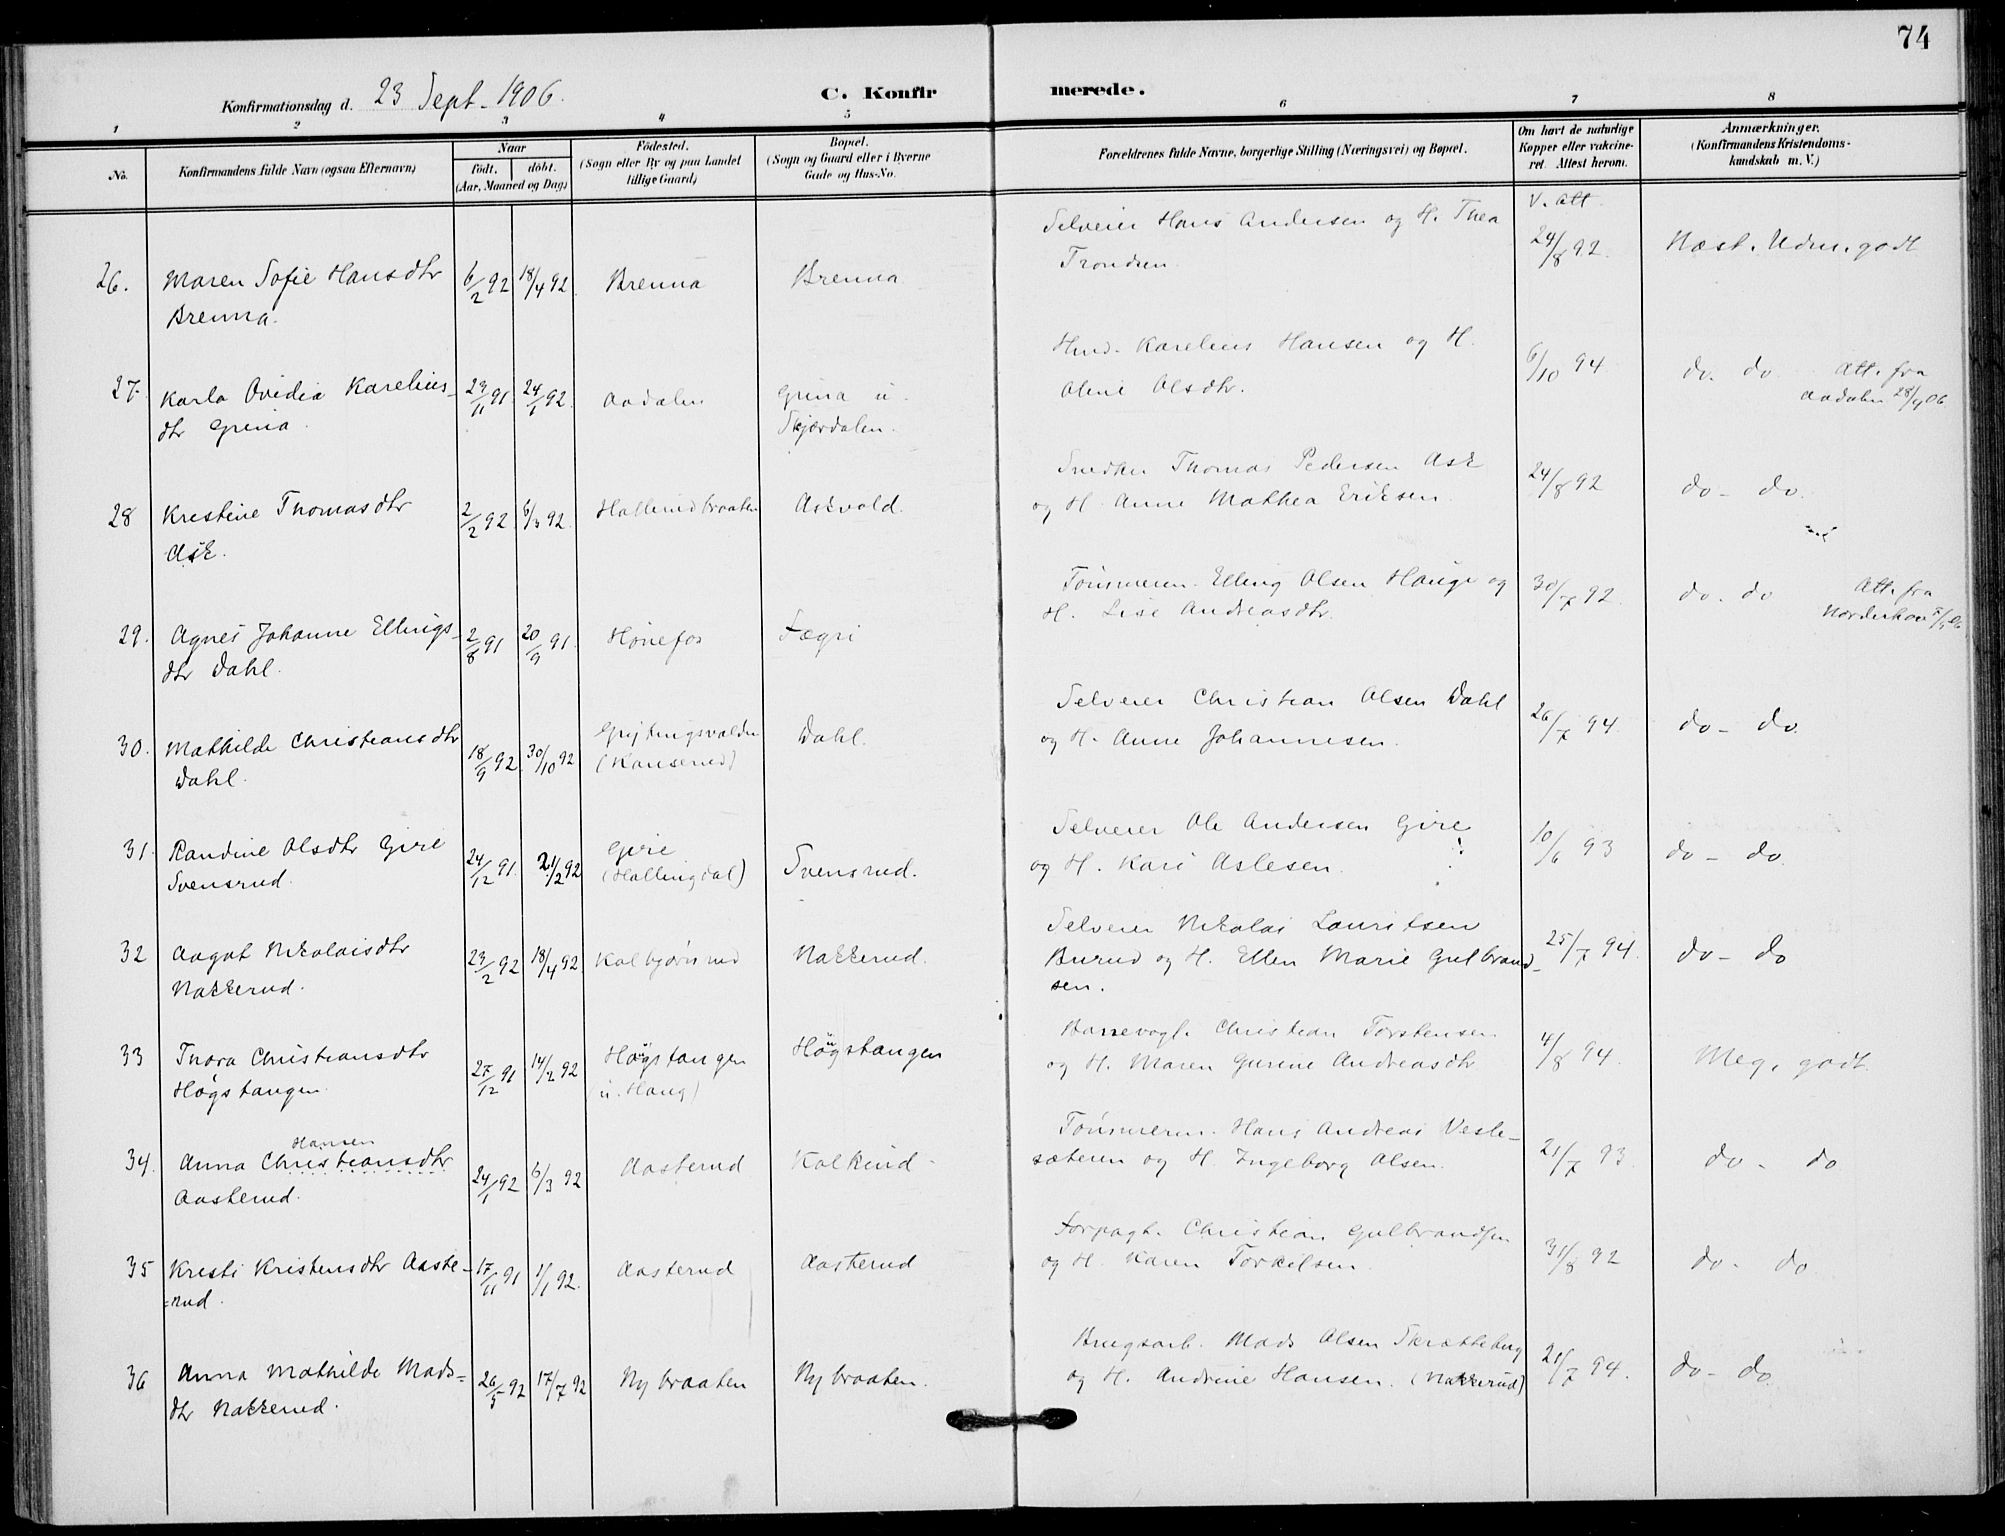 74
Konfirmationsdag d. 23 Sept. 1906.
C. Konfir merede.
1 2 3 4 5 6 7 8
No.
Konfirmandens fulde Navn (ogsaa Efternavn)
Naar
født. døbt.
(Aar, Maaned og Dag)
Fødested.
(Sogn eller By og paa Landet
tillige Gaard)
Bopæl.
(Sogn og Gaard eller i Byerne
Gade og Hus-No.
Forældrenes fulde Navne, borgerlige Stilling (Næringsvei) og Bopæl.
Om havt de naturlige
Kopper eller vakcine-
ret. Attest herom.
Anmærkninger.
(Konfirmandens Kristendoms-
kundskab m. V.)
V. Att.
Selveier Hans Andersen og H. Thea
Trondsen.
24/8 92.
Mæst. Udm. godt
26. Maren Sofie Hansdtr 6/2 92 18/4 92 Brenna Brenna
Brenna.
Hmd. Karelius Hansen og H.
Olene Olsdtr.
6/10 94
do. do. Att. fra
Aadalen 28/9 06
27. Karla Ovidia Karelius- 29/11 91. 24/1 92. Aadalen Grina u.
dtr Grina. Skjærdalen.
Snedker Thomas Pedersen Ask
og H. Anne Mathea Eriksen.
24/8 92
do - do.
28 Kristine Thomasdtr 2/2 92 6/3 92. Hallerudbraaten Askvold.
Ask.
Tømmerm. Elling Olsen Hauge og
H. Lise Andreasdtr.
30/7 92.
do. do Att. fra
Norderhov
29. Agnes Johanne Ellings- 2/8 91 20/9 91. Hønefos Fægri
dtr Dahl.
Selveier Christian Olsen Dahl
og H. Anne Johannesen.
26/7 94.
do - do.
30. Mathilde Christiansdtr 18/9 92 30/10 92 Dahl.
Dahl.
Selveier Ole Andersen Gire
og H. Kari Aslesen.
10/6 93
do - do.
31. Randine Olsdtr Gire 24/12 91. 21/2 92 Gire Svensrud.
Svensrud. (Hallingdal)
Selveier Nikolai Lauritsen
Burud og H. Ellen Marie Gulbrand-
sen.
25/7 94.
do - do
32 Aagot Nikolaisdtr 23/2 92 18/4 92 Kolbjørnsrud Nakkerud.
Nakkerud.
Christian Torstensen
og H. Maren Gurine Andreasdtr
4/8 94.
Meg. godt
33 Thora Christiansdtr 27/12 91 14/2 92 Høgstangen Høgstangen
Høgstangen. (u. Haug)
Tømmerm. Hans Andreas Vesle-
sæteren og H. Ingeborg Olsen.
21/7 93.
do - do
Hansen
34. Anna Christiansdtr 24/1 92 6/3 92 Aasterud Kolkind
Aasterud.
Forpagt. Christian Gulbrandsen
og H. Karen Torkilsen.
31/8 92
do - do
35 Kristi Kristensdtr Aaste- 17/11 91 1/1 92. Aasterud Aasterud
=rud.
Brugsarb. Mads Olsen Skratteberg
og H. Andrine Hansen. (Nakkerud)
21/7 94.
do - do.
36 Anna Mathilde Mads= 26/5 92 17/7 92 Nybraaten Nybraaten.
dtr Nakkerud.